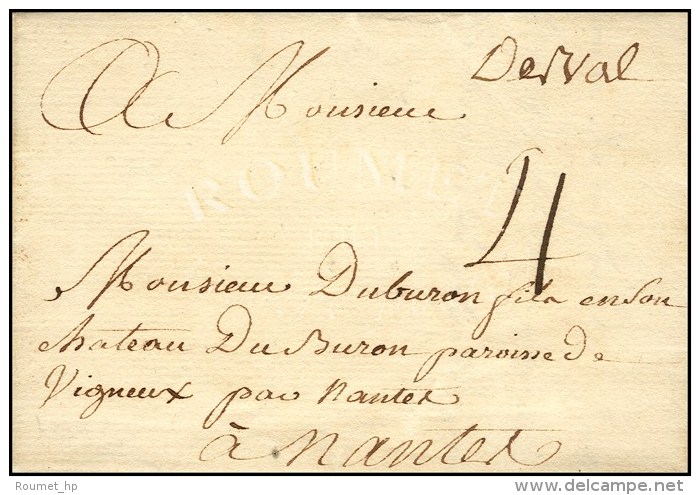 Derval
A Monsieur
ROUMET
4
Monsieur Duburon fils en son
chateau Du Buron paroisse de
Vigneux par Nantes
à Nantes
Roumet_hp
delcampe.net